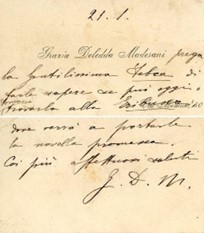 21.1.
Grazia Deledda Madesani prega
la gentilissima
farle sapere se può oggi
trovarla alle
dove verrà a portarle
la novella promessa.
Coi più affettuosi saluti
G. D. M.